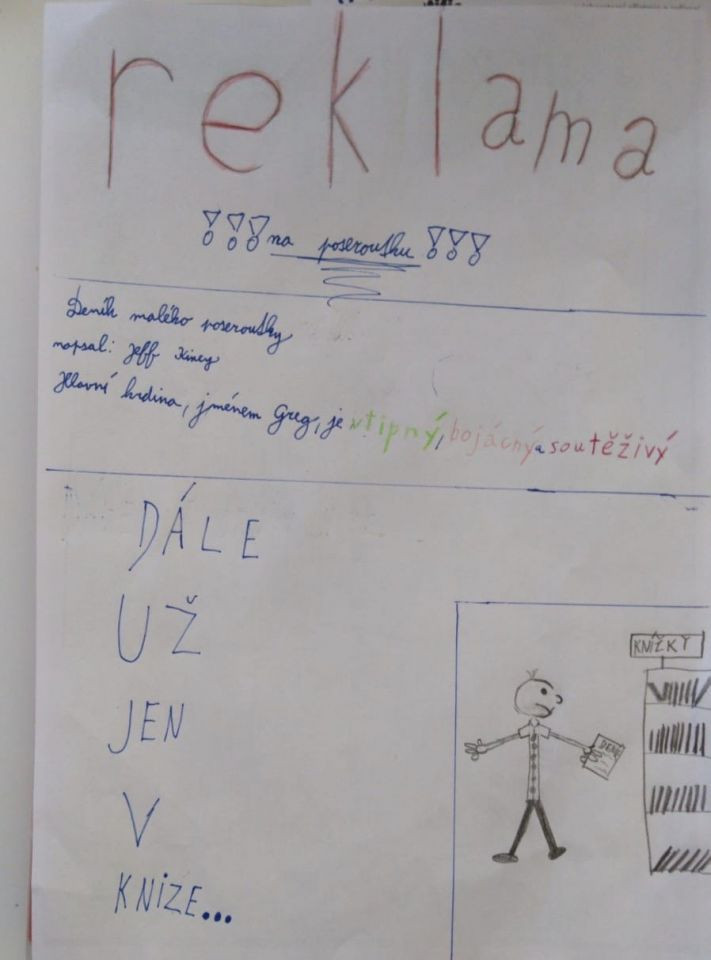 reklama
!!! na poseroutku !!!
Deník malého poseroutky
napsal: Jeff Kiney
Hlavní hrdina, jménem Greg, je vtipný, bojácný a soutěživý
DÁLE
UŽ
JEN
V
KNIZE...
KNÍŽKY
DENÍ